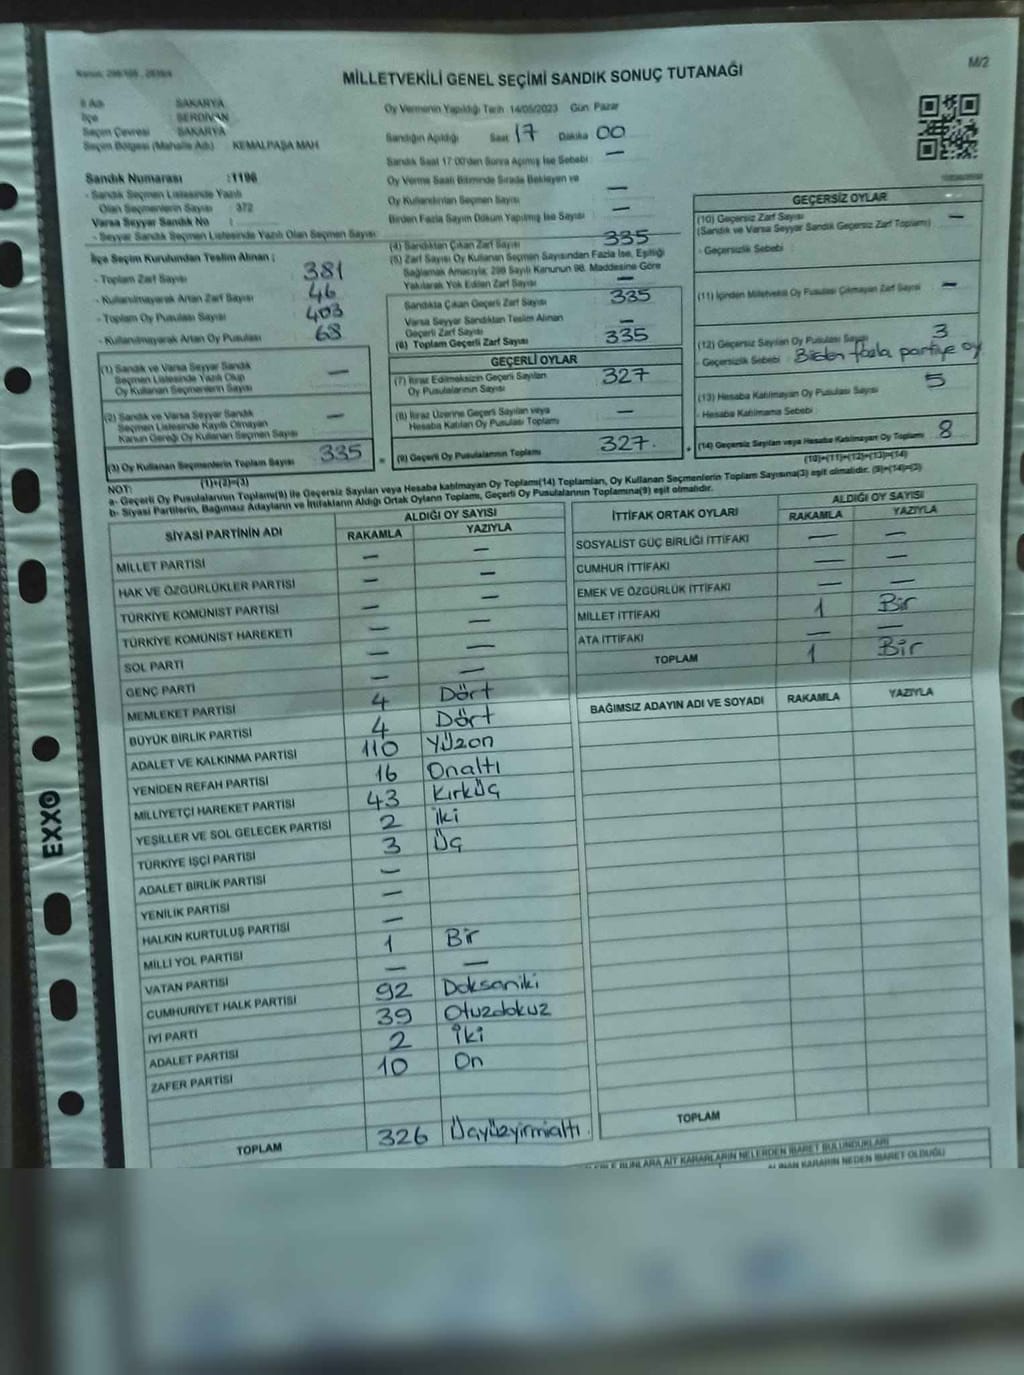 MİLLETVEKİLİ GENEL SEÇİMİ SANDIK SONUÇ TUTANAĞI
M/2
İl Adı : SAKARYA
İlçe : SERDİVAN
Seçim Çevresi : SAKARYA
Seçim Bölgesi (Mahalle Adı) : KEMALPAŞA MAH
Sandık Numarası :1196
- Sandık Seçmen Listesinde Yazılı
Olan Seçmenlerin Sayısı : 372
Varsa Seyyar Sandık No :
- Seyyar Sandık Seçmen Listesinde Yazılı Olan Seçmen Sayısı
İlçe Seçim Kurulundan Teslim Alınan ;
- Toplam Zarf Sayısı 381
- Kullanılmayarak Artan Zarf Sayısı 46
- Toplam Oy Pusulası Sayısı 403
- Kullanılmayarak Artan Oy Pusulası 68
(1) Sandık ve Varsa Seyyar Sandık
Seçmen Listesinde Yazılı Olup
Oy Kullanan Seçmenlerin Sayısı —
(2) Sandık ve Varsa Seyyar Sandık
Seçmen Listesinde Kayıtlı Olmayan
Kanun Gereği Oy Kullanan Seçmen Sayısı —
(3) Oy Kullanan Seçmenlerin Toplam Sayısı 335
(1)+(2)=(3)
Oy Vermenin Yapıldığı Tarih 14/05/2023 Gün Pazar
Sandığın Açıldığı Saat 17 Dakika 00
Sandık Saat 17:00'den Sonra Açılmış İse Sebebi —
Oy Verme Saati Bitiminde Sırada Bekleyen ve
Oy Kullandırılan Seçmen Sayısı —
Birden Fazla Sayım Döküm Yapılmış İse Sayısı —
(4) Sandıktan Çıkan Zarf Sayısı 335
(5) Zarf Sayısı Oy Kullanan Seçmen Sayısından Fazla İse, Eşitliği
Sağlamak Amacıyla; 298 Sayılı Kanunun 98. Maddesine Göre
Yakılarak Yok Edilen Zarf Sayısı —
Sandıkta Çıkan Geçerli Zarf Sayısı 335
Varsa Seyyar Sandıktan Teslim Alınan
Geçerli Zarf Sayısı —
(6) Toplam Geçerli Zarf Sayısı 335
GEÇERLİ OYLAR
(7) İtiraz Edilmeksizin Geçerli Sayılan
Oy Pusulalarının Sayısı 327
(8) İtiraz Üzerine Geçerli Sayılan veya
Hesaba Katılan Oy Pusulası Toplamı —
(9) Geçerli Oy Pusulalarının Toplamı 327.
GEÇERSİZ OYLAR
(10) Geçersiz Zarf Sayısı —
(Sandık ve Varsa Seyyar Sandık Geçersiz Zarf Toplamı)
- Geçersizlik Sebebi :
(11) İçinden Milletvekili Oy Pusulası Çıkmayan Zarf Sayısı —
(12) Geçersiz Sayılan Oy Pusulası Sayısı 3
- Geçersizlik Sebebi : Birden fazla partiye oy
(13) Hesaba Katılmayan Oy Pusulası Sayısı 5
- Hesaba Katılmama Sebebi :
(14) Geçersiz Sayılan veya Hesaba Katılmayan Oy Toplamı 8
(10)+(11)+(12)+(13)=(14)
NOT:
a- Geçerli Oy Pusulalarının Toplamı(9) ile Geçersiz Sayılan veya Hesaba katılmayan Oy Toplamı(14) Toplamları, Oy Kullanan Seçmenlerin Toplam Sayısına(3) eşit olmalıdır. (9)+(14)=(3)
b- Siyasi Partilerin, Bağımsız Adayların ve İttifakların Aldığı Ortak Oyların Toplamı, Geçerli Oy Pusulalarının Toplamına(9) eşit olmalıdır.
SİYASİ PARTİNİN ADI ALDIĞI OY SAYISI
RAKAMLA YAZIYLA
MİLLET PARTİSİ — —
HAK VE ÖZGÜRLÜKLER PARTİSİ — —
TÜRKİYE KOMÜNİST PARTİSİ — —
TÜRKİYE KOMÜNİST HAREKETİ — —
SOL PARTİ — —
GENÇ PARTİ — —
MEMLEKET PARTİSİ 4 Dört
BÜYÜK BİRLİK PARTİSİ 4 Dört
ADALET VE KALKINMA PARTİSİ 110 Yüzon
YENİDEN REFAH PARTİSİ 16 Onaltı
MİLLİYETÇİ HAREKET PARTİSİ 43 Kırküç
YEŞİLLER VE SOL GELECEK PARTİSİ 2 İki
TÜRKİYE İŞÇİ PARTİSİ 3 Üç
ADALET BİRLİK PARTİSİ —
YENİLİK PARTİSİ —
HALKIN KURTULUŞ PARTİSİ —
MİLLİ YOL PARTİSİ 1 Bir
VATAN PARTİSİ — —
CUMHURİYET HALK PARTİSİ 92 Doksaniki
İYİ PARTİ 39 Otuzdokuz
ADALET PARTİSİ 2 İki
ZAFER PARTİSİ 10 On
TOPLAM 326 Üçyüzyirmialtı.
İTTİFAK ORTAK OYLARI ALDIĞI OY SAYISI
RAKAMLA YAZIYLA
SOSYALİST GÜÇ BİRLİĞİ İTTİFAKI — —
CUMHUR İTTİFAKI — —
EMEK VE ÖZGÜRLÜK İTTİFAKI — —
MİLLET İTTİFAKI 1 Bir
ATA İTTİFAKI — —
TOPLAM 1 Bir
BAĞIMSIZ ADAYIN ADI VE SOYADI RAKAMLA YAZIYLA
TOPLAM
BUNLARA AİT KARARLARIN NELERDEN İBARET BULUNDUKLARI
ALINAN KARARIN NEDEN İBARET OLDUĞU
EXXO